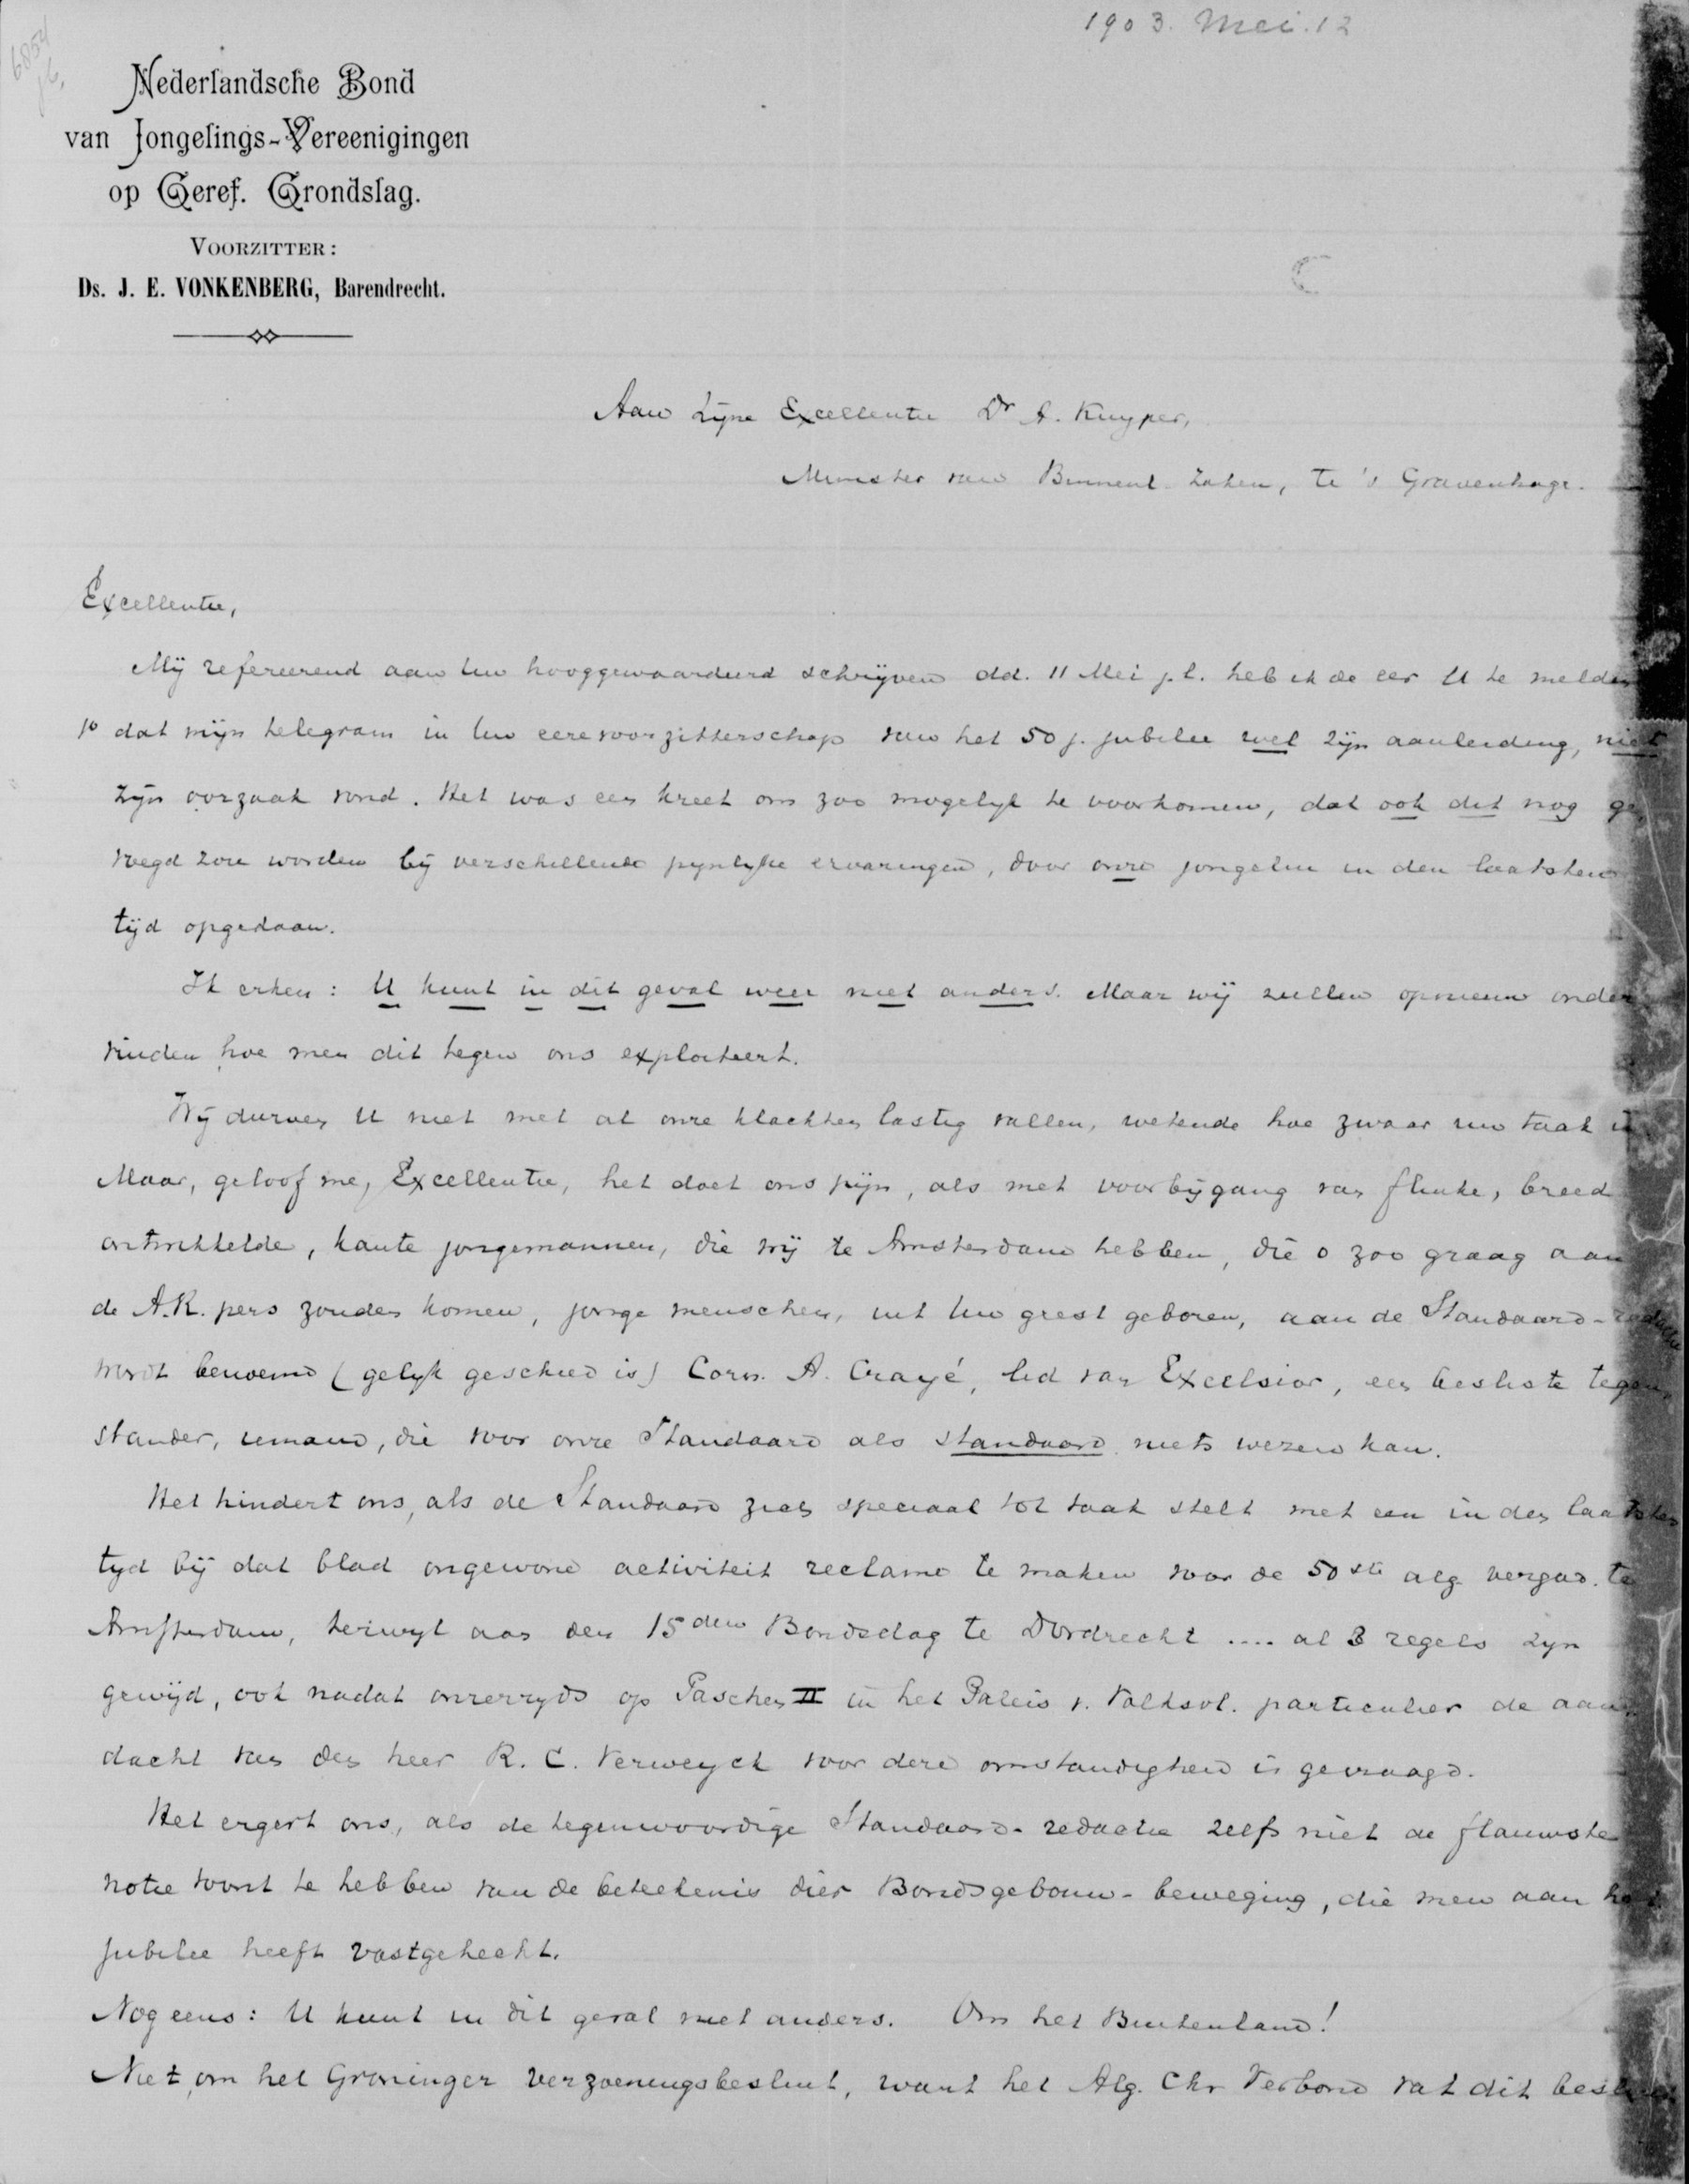 1903. Mei. 12
6854
Nederlandsche Bond
van Jongelings-Vereenigingen
op Geref. Grondslag.
VOORZITTER:
Ds. J. E. VONKENBERG, Barendrecht.
Aan Zijne Excellentie Dr A. Kuyper,
Minister van Binnenl. Zaken, te 's Gravenhage.
Excellentie,
Mij refereerend aan Uw hooggewaardeerd schrijven dd. 11 Mei j.l. heb ik de eer U te melden
1o dat mijn telegram in Uw eerevoorzitterschap van het 50 j. jubilee wel zijn aanleiding, niet
zijn oorzaak vond. Het was een kreet om zoo mogelijk te voorkomen, dat ook dit nog ge,
voegd zou worden bij verschillende pijnlijke ervaringen, door onze jongelui in den laatsten
tijd opgedaan.
Ik erken: U kunt in dit geval weer niet anders. Maar wij zullen opnieuw onder
vinden hoe men dit tegen ons exploiteert.
Wij durven U niet met al onze klachten lastig vallen, wetende hoe zwaar uw taak is
Maar, geloof me, Excellentie, het doet ons pijn, als met voorbijgang van flinke, breed
ontwikkelde, kante jongemannen, die wij te Amsterdam hebben, die o zoo graag aan
de A.R. pers zouden komen, jonge menschen, uit Uw geest geboren, aan de Standaard-redactie
wordt benoemd (gelijk geschied is) Corn. A. Crayé, lid van Excelsior, een besliste tegen,
stander, iemand, die voor onze Standaard als standaard niets wezen kan.
Het hindert ons, als de Standaard zich speciaal tot taak stelt met een in den laatsten
tijd bij dat blad ongewone activiteit reclame te maken voor de 50ste alg. vergad. te
Amsterdam, terwijl aan den 15den Bondsdag te Dordrecht .... al 3 regels zijn
gewijd, ook nadat onzerzijds op Paschen II in het Paleis v. Volksvl. particulier de aan,
dacht van den heer R. C. Verweyck voor deze omstandigheid is gevraagd.
Het ergert ons, als de tegenwoordige Standaard-redactie zelfs niet de flauwste
notie toont te hebben van de beteekenis dier Bondsgebouw-beweging, die men aan het
jubilee heeft vastgehecht.
Nog eens: U kunt in dit geval niet anders. Om het Buitenland!
Niet om het Groninger verzoeningsbesluit, want het Alg. Chr. Verbond vat dit besluit